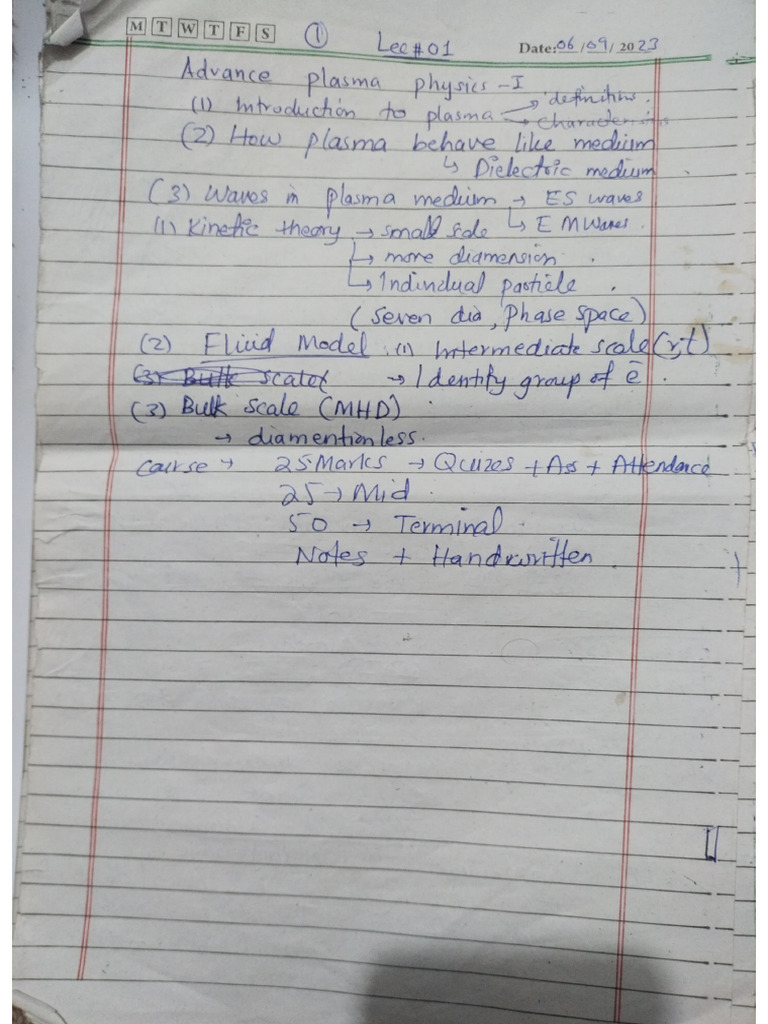 M T W T F S ① Lec # 01 Date: 06 / 09 / 2023
Advance plasma physics - I
(1) Introduction to plasma → definitions.
→ Characteristics
(2) How plasma behave like medium
↳ Dielectric medium
(3) Waves in plasma medium → ES waves
(1) Kinetic theory → small scale ↳ EM Waves.
↳ more diamension.
↳ Individual particle.
(seven dia, Phase space)
(2) Fluid Model (1) Intermediate scale (r,t)
(3) Bulk scale → Identify group of ē.
(3) Bulk Scale (MHD)
→ diamentionless.
Course → 25 Marks → Quizes + Ass + Attendance
25 → Mid.
50 → Terminal.
Notes + Handwritten.